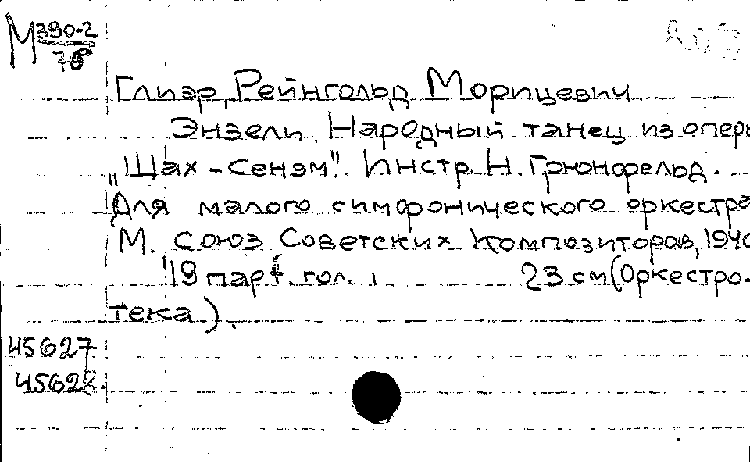 М 390-2
Глиэр, Рейнгольд Морицевич
Энзели. Народный танец из оперы
„Шах-Сенэм". Инстр. Н. Грюнфельд.
Для малого симфонического оркестра
М. Союз Советских Композиторов, 1940
19 парт. гол. 23 см (Оркестро-
тека).
45627
45628.